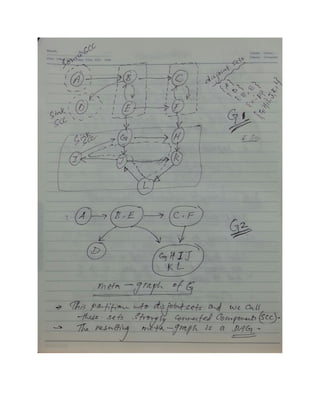 Source SCC
A B C
disjoint sets
{A}
{B,E}
Sink
SCC
D E F
G1
Sink
SCC
G H
I J K
L
A B-E C-F
G2
D
G H I J
K L
meta-graph of G
→ This partition into disjoint sets and we call
these sets strongly connected Components (SCC).
→ The resulting meta-graph is a DAG.